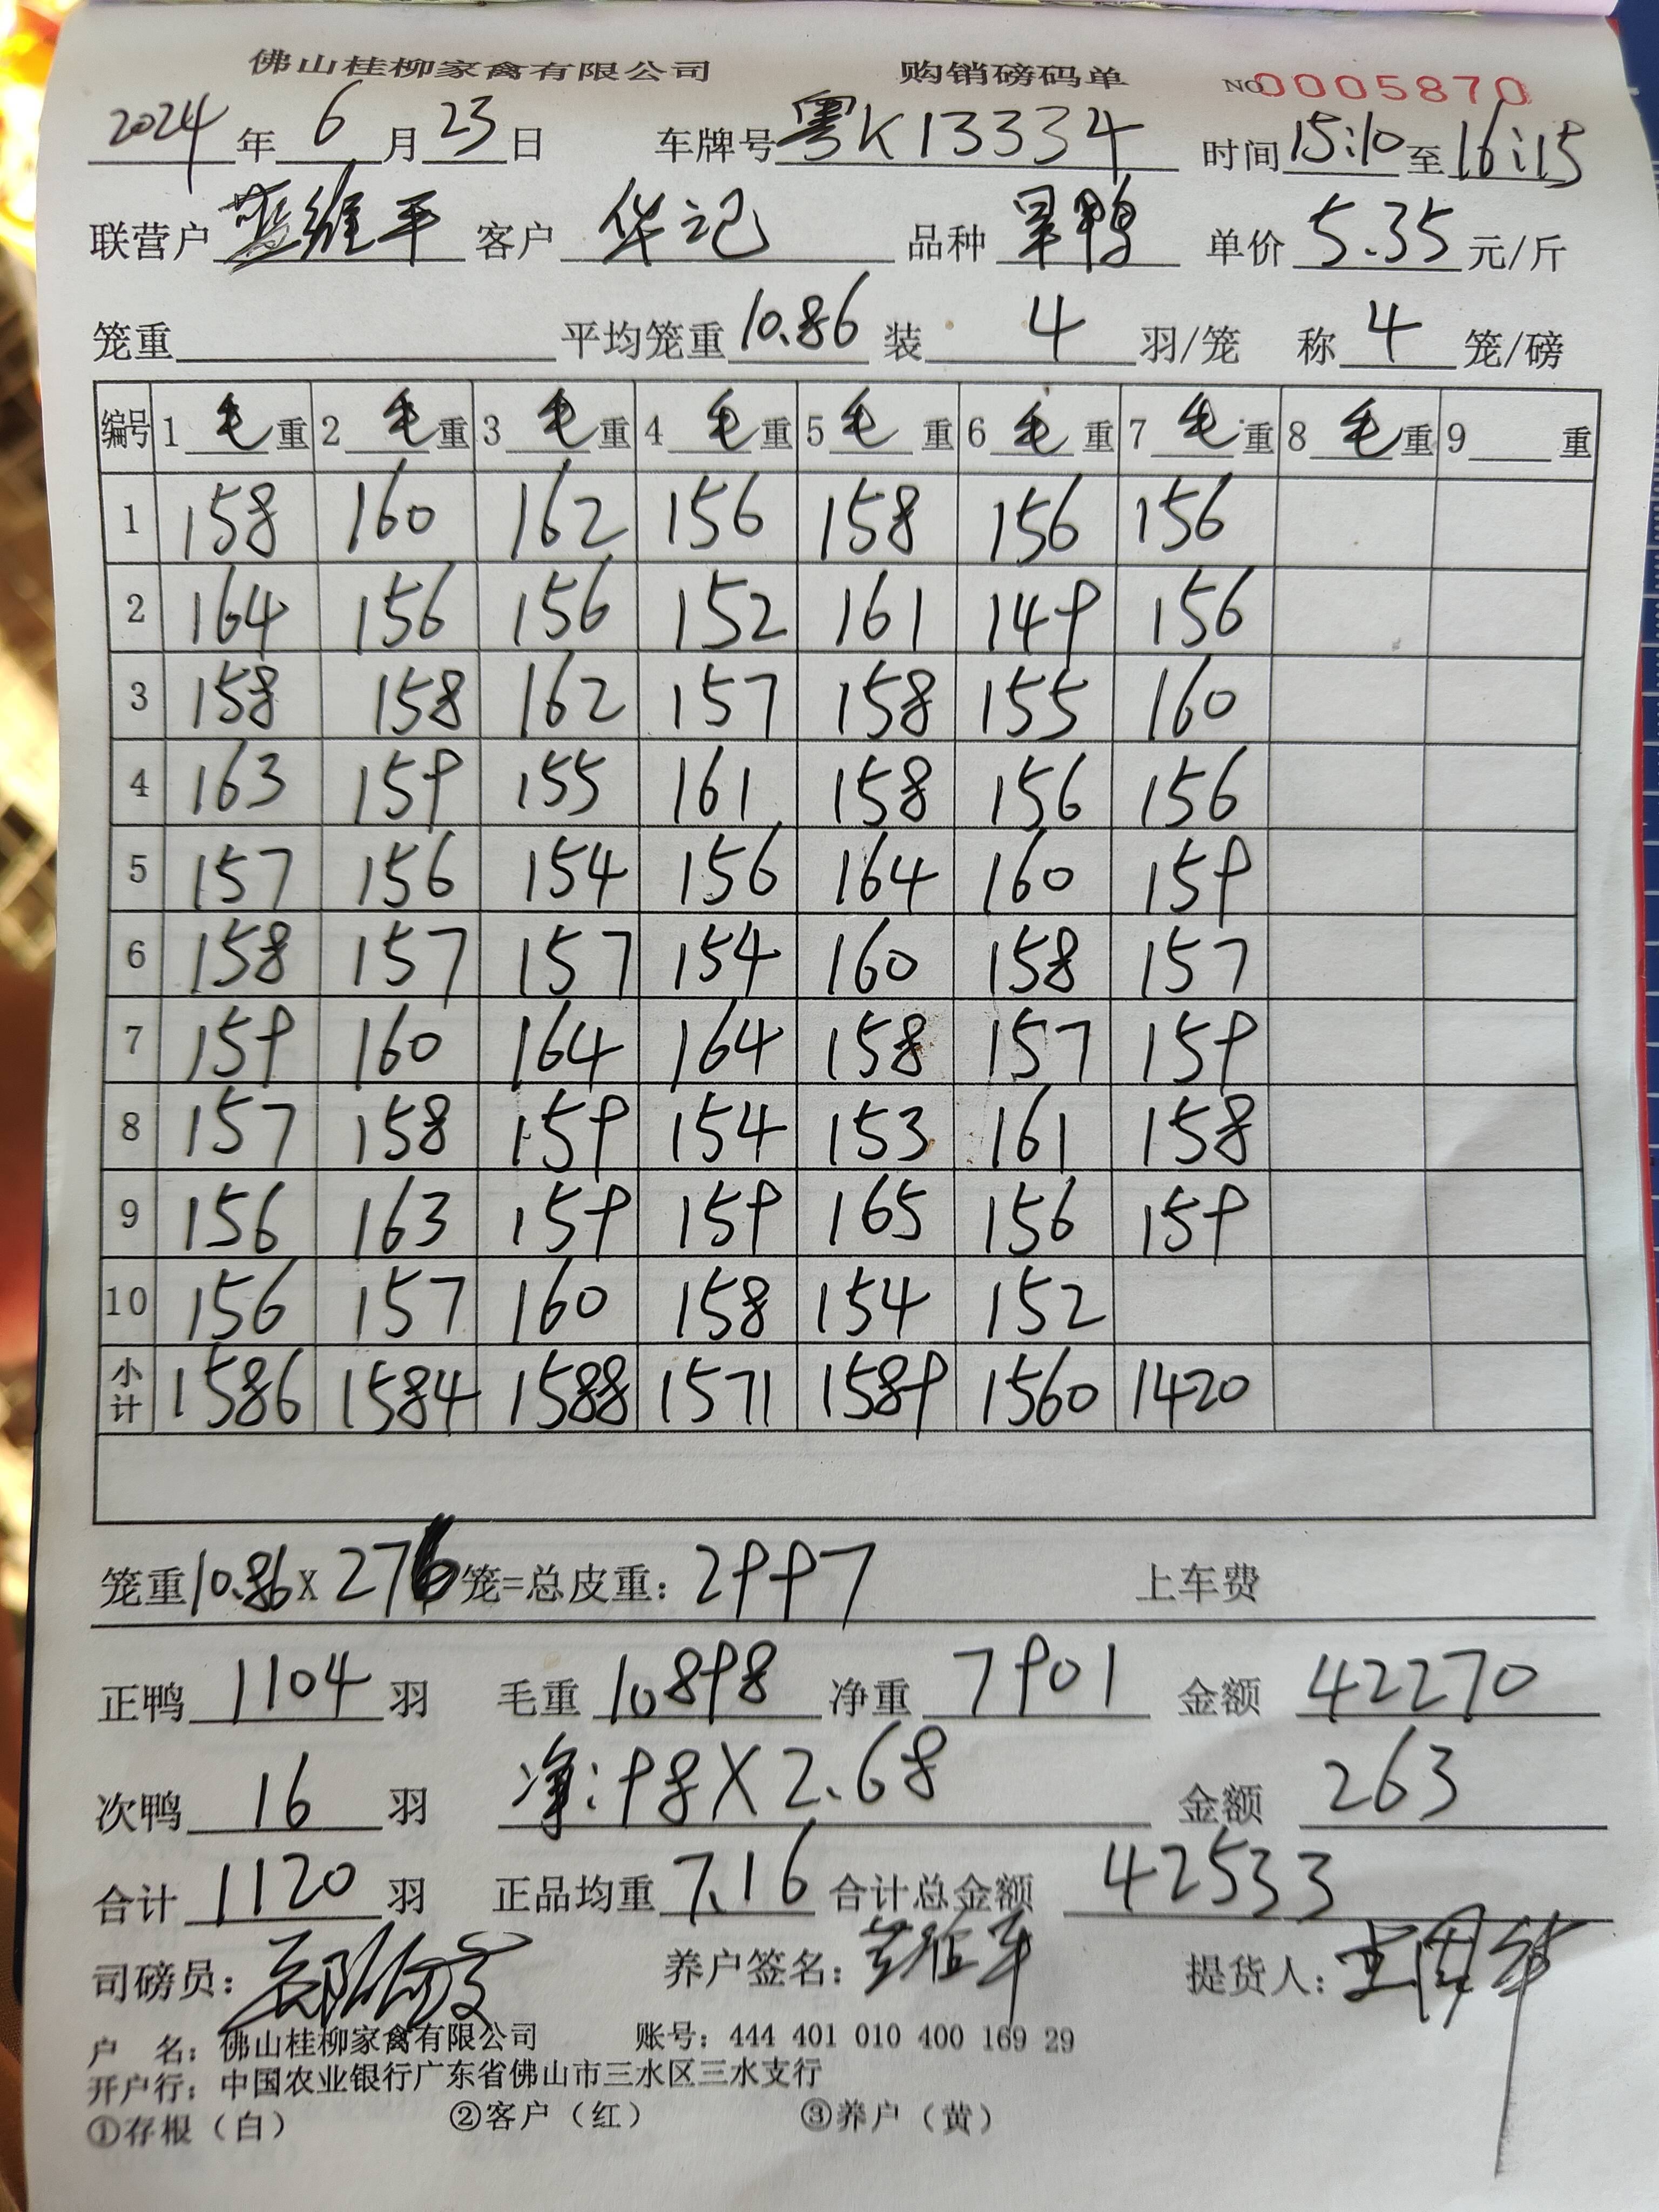 佛山桂柳家禽有限公司 购销磅码单 NO 0005870
2024年6月23日 车牌号粤K13334 时间15:10至16:15
联营户蓝维平 客户华记 品种旱鸭 单价5.35元/斤
笼重 平均笼重10.86 装4羽/笼 称4笼/磅
编号 1毛重 2毛重 3毛重 4毛重 5毛重 6毛重 7毛重 8毛重 9重
1 158 160 162 156 158 156 156
2 164 156 156 152 161 149 156
3 158 158 162 157 158 155 160
4 163 159 155 161 158 156 156
5 157 156 154 156 164 160 159
6 158 157 157 154 160 158 157
7 159 160 164 164 158 157 159
8 157 158 159 154 153 161 158
9 156 163 159 159 165 156 159
10 156 157 160 158 154 152
小计 1586 1584 1588 1571 1589 1560 1420
笼重10.86X276笼=总皮重：2997 上车费
正鸭1104羽 毛重10898 净重7901 金额42270
次鸭16羽 净:98X2.68 金额263
合计1120羽 正品均重7.16 合计总金额42533
司磅员： 养户签名： 提货人：
户 名：佛山桂柳家禽有限公司 账号：444 401 010 400 169 29
开户行：中国农业银行广东省佛山市三水区三水支行
①存根（白） ②客户（红） ③养户（黄）